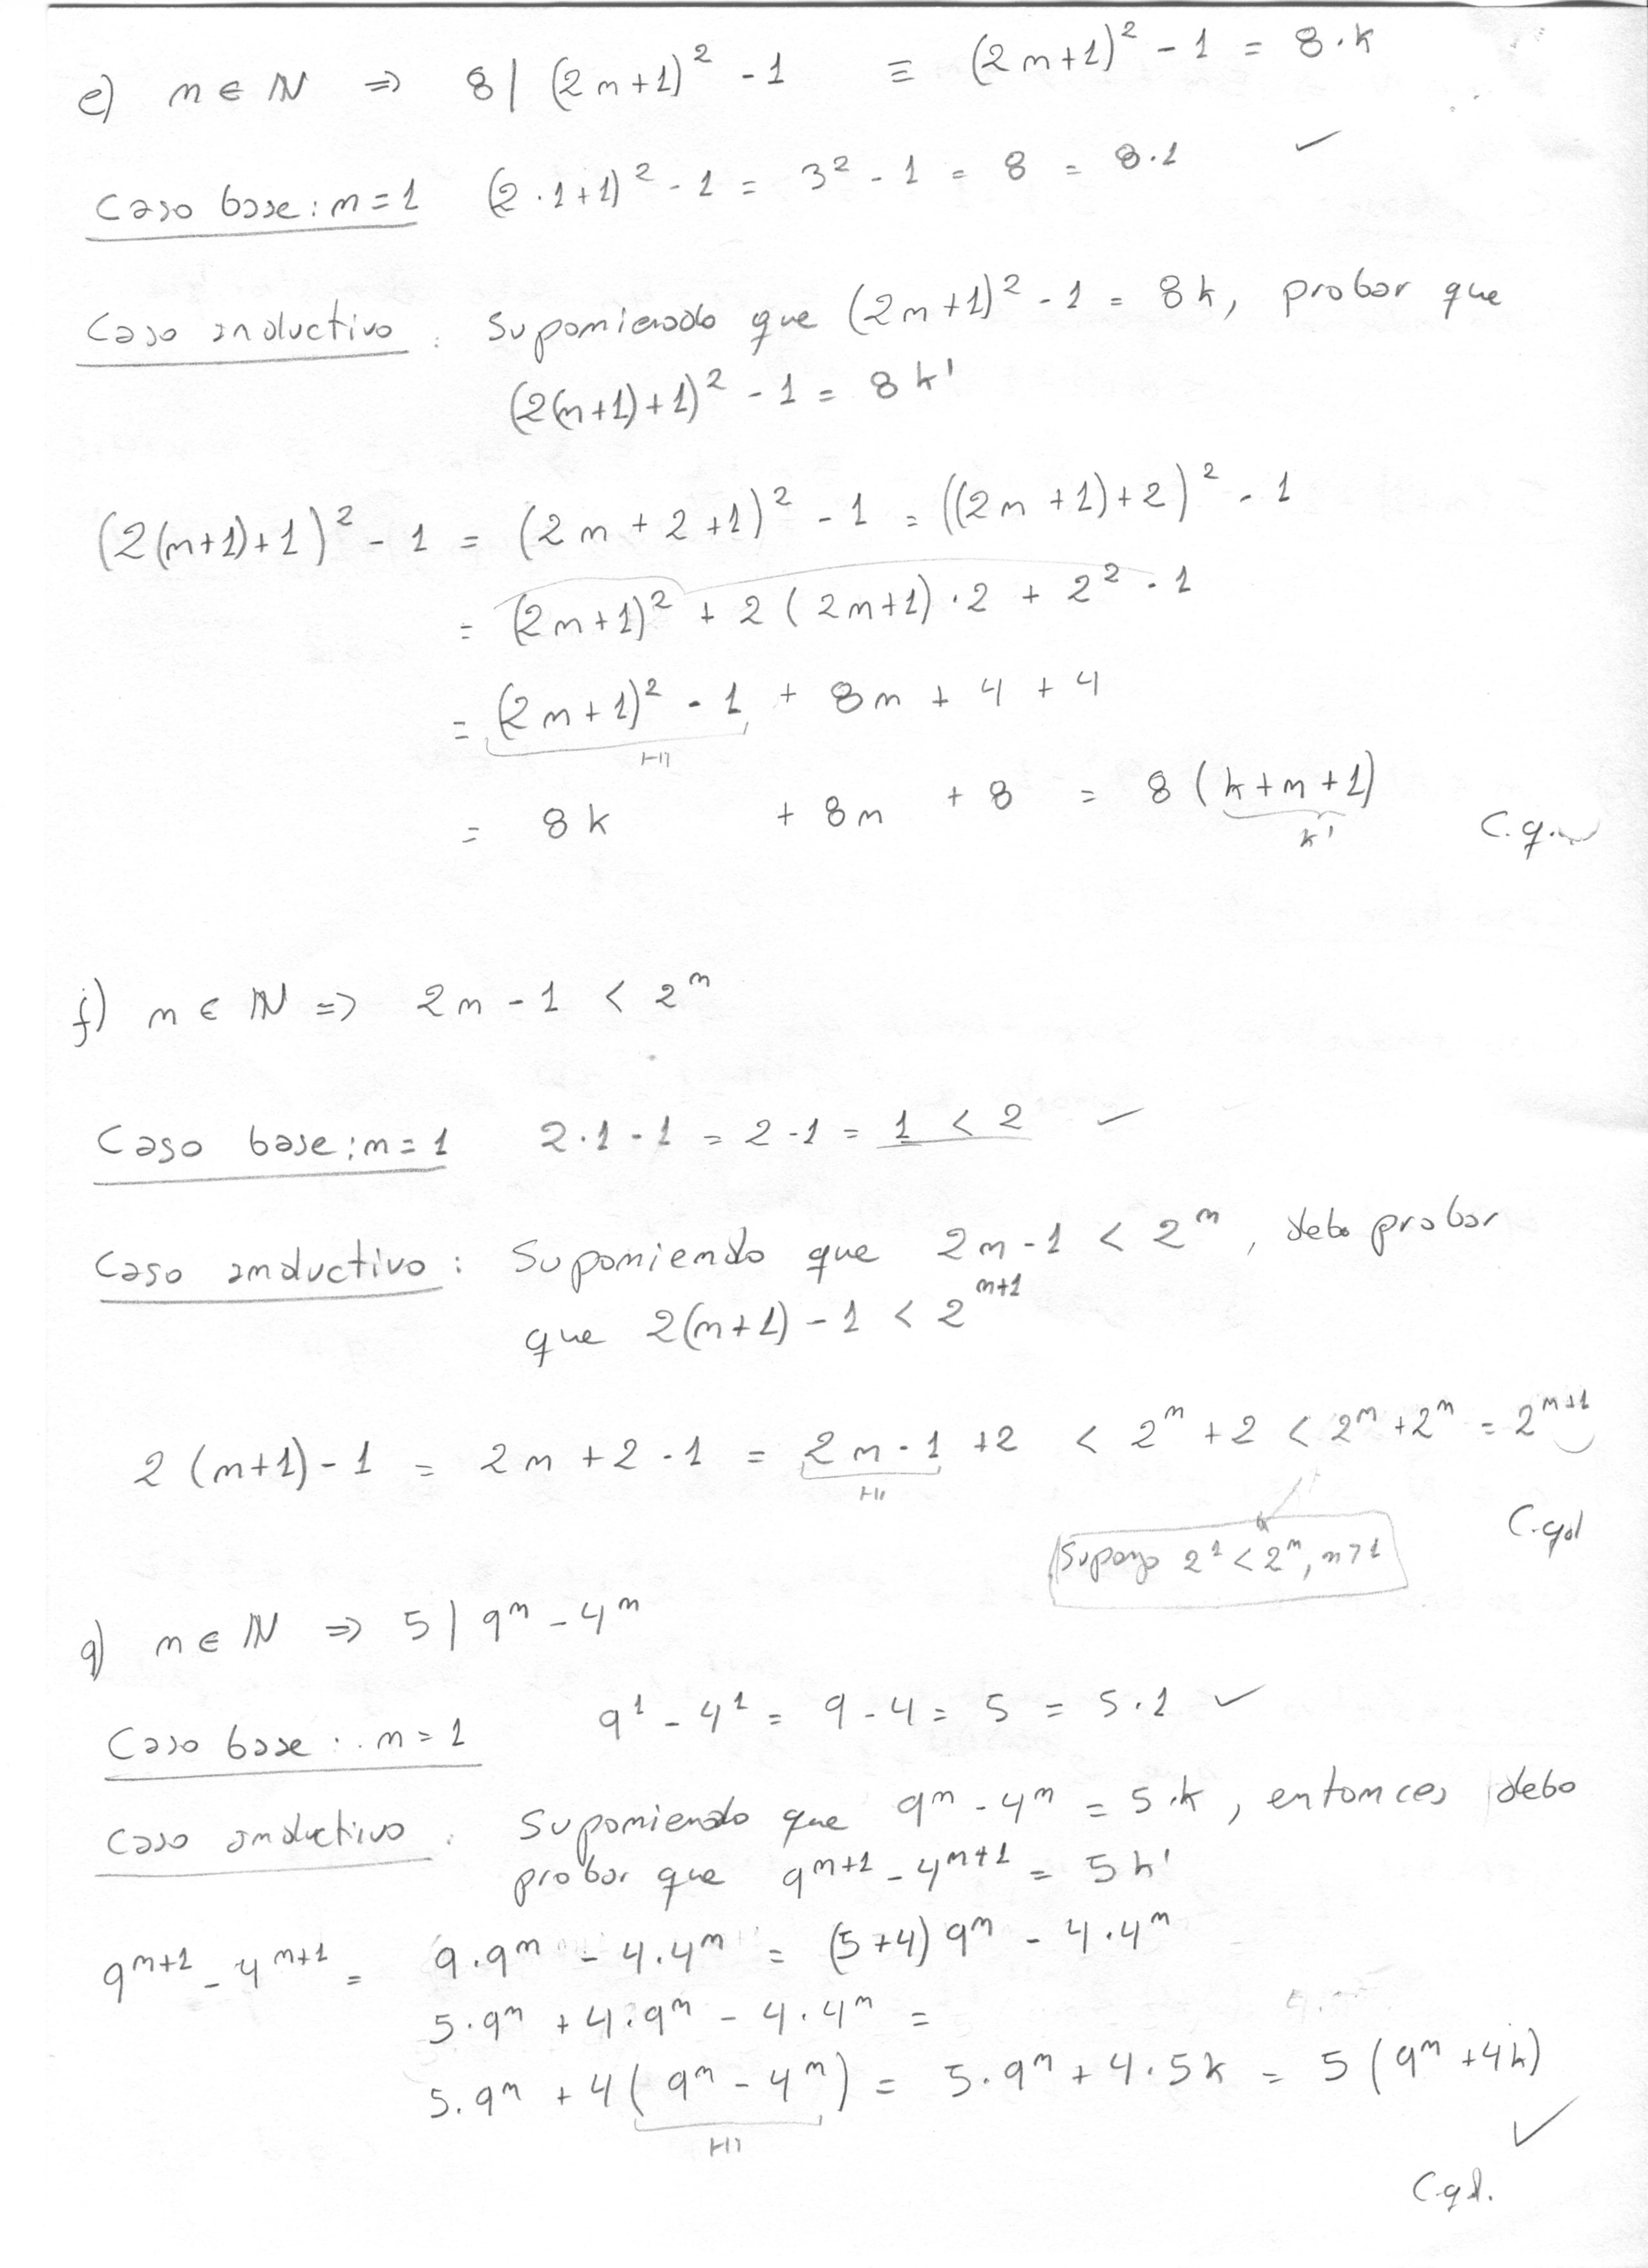 e) n ∈ ℕ ⇒ 8 | (2n+1)² - 1 ≡ (2n+1)² - 1 = 8·k
Caso base: n=1 (2·1+1)² - 1 = 3² - 1 = 8 = 8·1 ✓
Caso inductivo: Suponiendo que (2n+1)² - 1 = 8k, probar que
(2(n+1)+1)² - 1 = 8k'
(2(n+1)+1)² - 1 = (2n+2+1)² - 1 = ((2n+1)+2)² - 1
= (2n+1)² + 2(2n+1)·2 + 2² - 1
= (2n+1)² - 1 + 8n + 4 + 4
HI
= 8k + 8n + 8 = 8(k+n+1)
k'
C.q.
f) n ∈ ℕ ⇒ 2n - 1 < 2ⁿ
Caso base: n=1 2·1-1 = 2-1 = 1 < 2 ✓
Caso inductivo: Suponiendo que 2n-1 < 2ⁿ, debo probar
que 2(n+1) - 1 < 2ⁿ⁺¹
2(n+1)-1 = 2n+2-1 = 2n-1+2 < 2ⁿ+2 < 2ⁿ+2ⁿ = 2ⁿ⁺¹
HI
C.qd
Supongo 2¹ < 2ⁿ, n>1
g) n ∈ ℕ ⇒ 5 | 9ⁿ - 4ⁿ
Caso base: n=1 9¹ - 4¹ = 9-4 = 5 = 5·1 ✓
Caso inductivo: Suponiendo que 9ⁿ - 4ⁿ = 5·k, entonces debo
probar que 9ⁿ⁺¹ - 4ⁿ⁺¹ = 5k'
9ⁿ⁺¹ - 4ⁿ⁺¹ = 9·9ⁿ - 4·4ⁿ = (5+4)9ⁿ - 4·4ⁿ
5·9ⁿ + 4·9ⁿ - 4·4ⁿ =
5·9ⁿ + 4(9ⁿ - 4ⁿ) = 5·9ⁿ + 4·5k = 5(9ⁿ+4k)
HI
✓
C.qd.